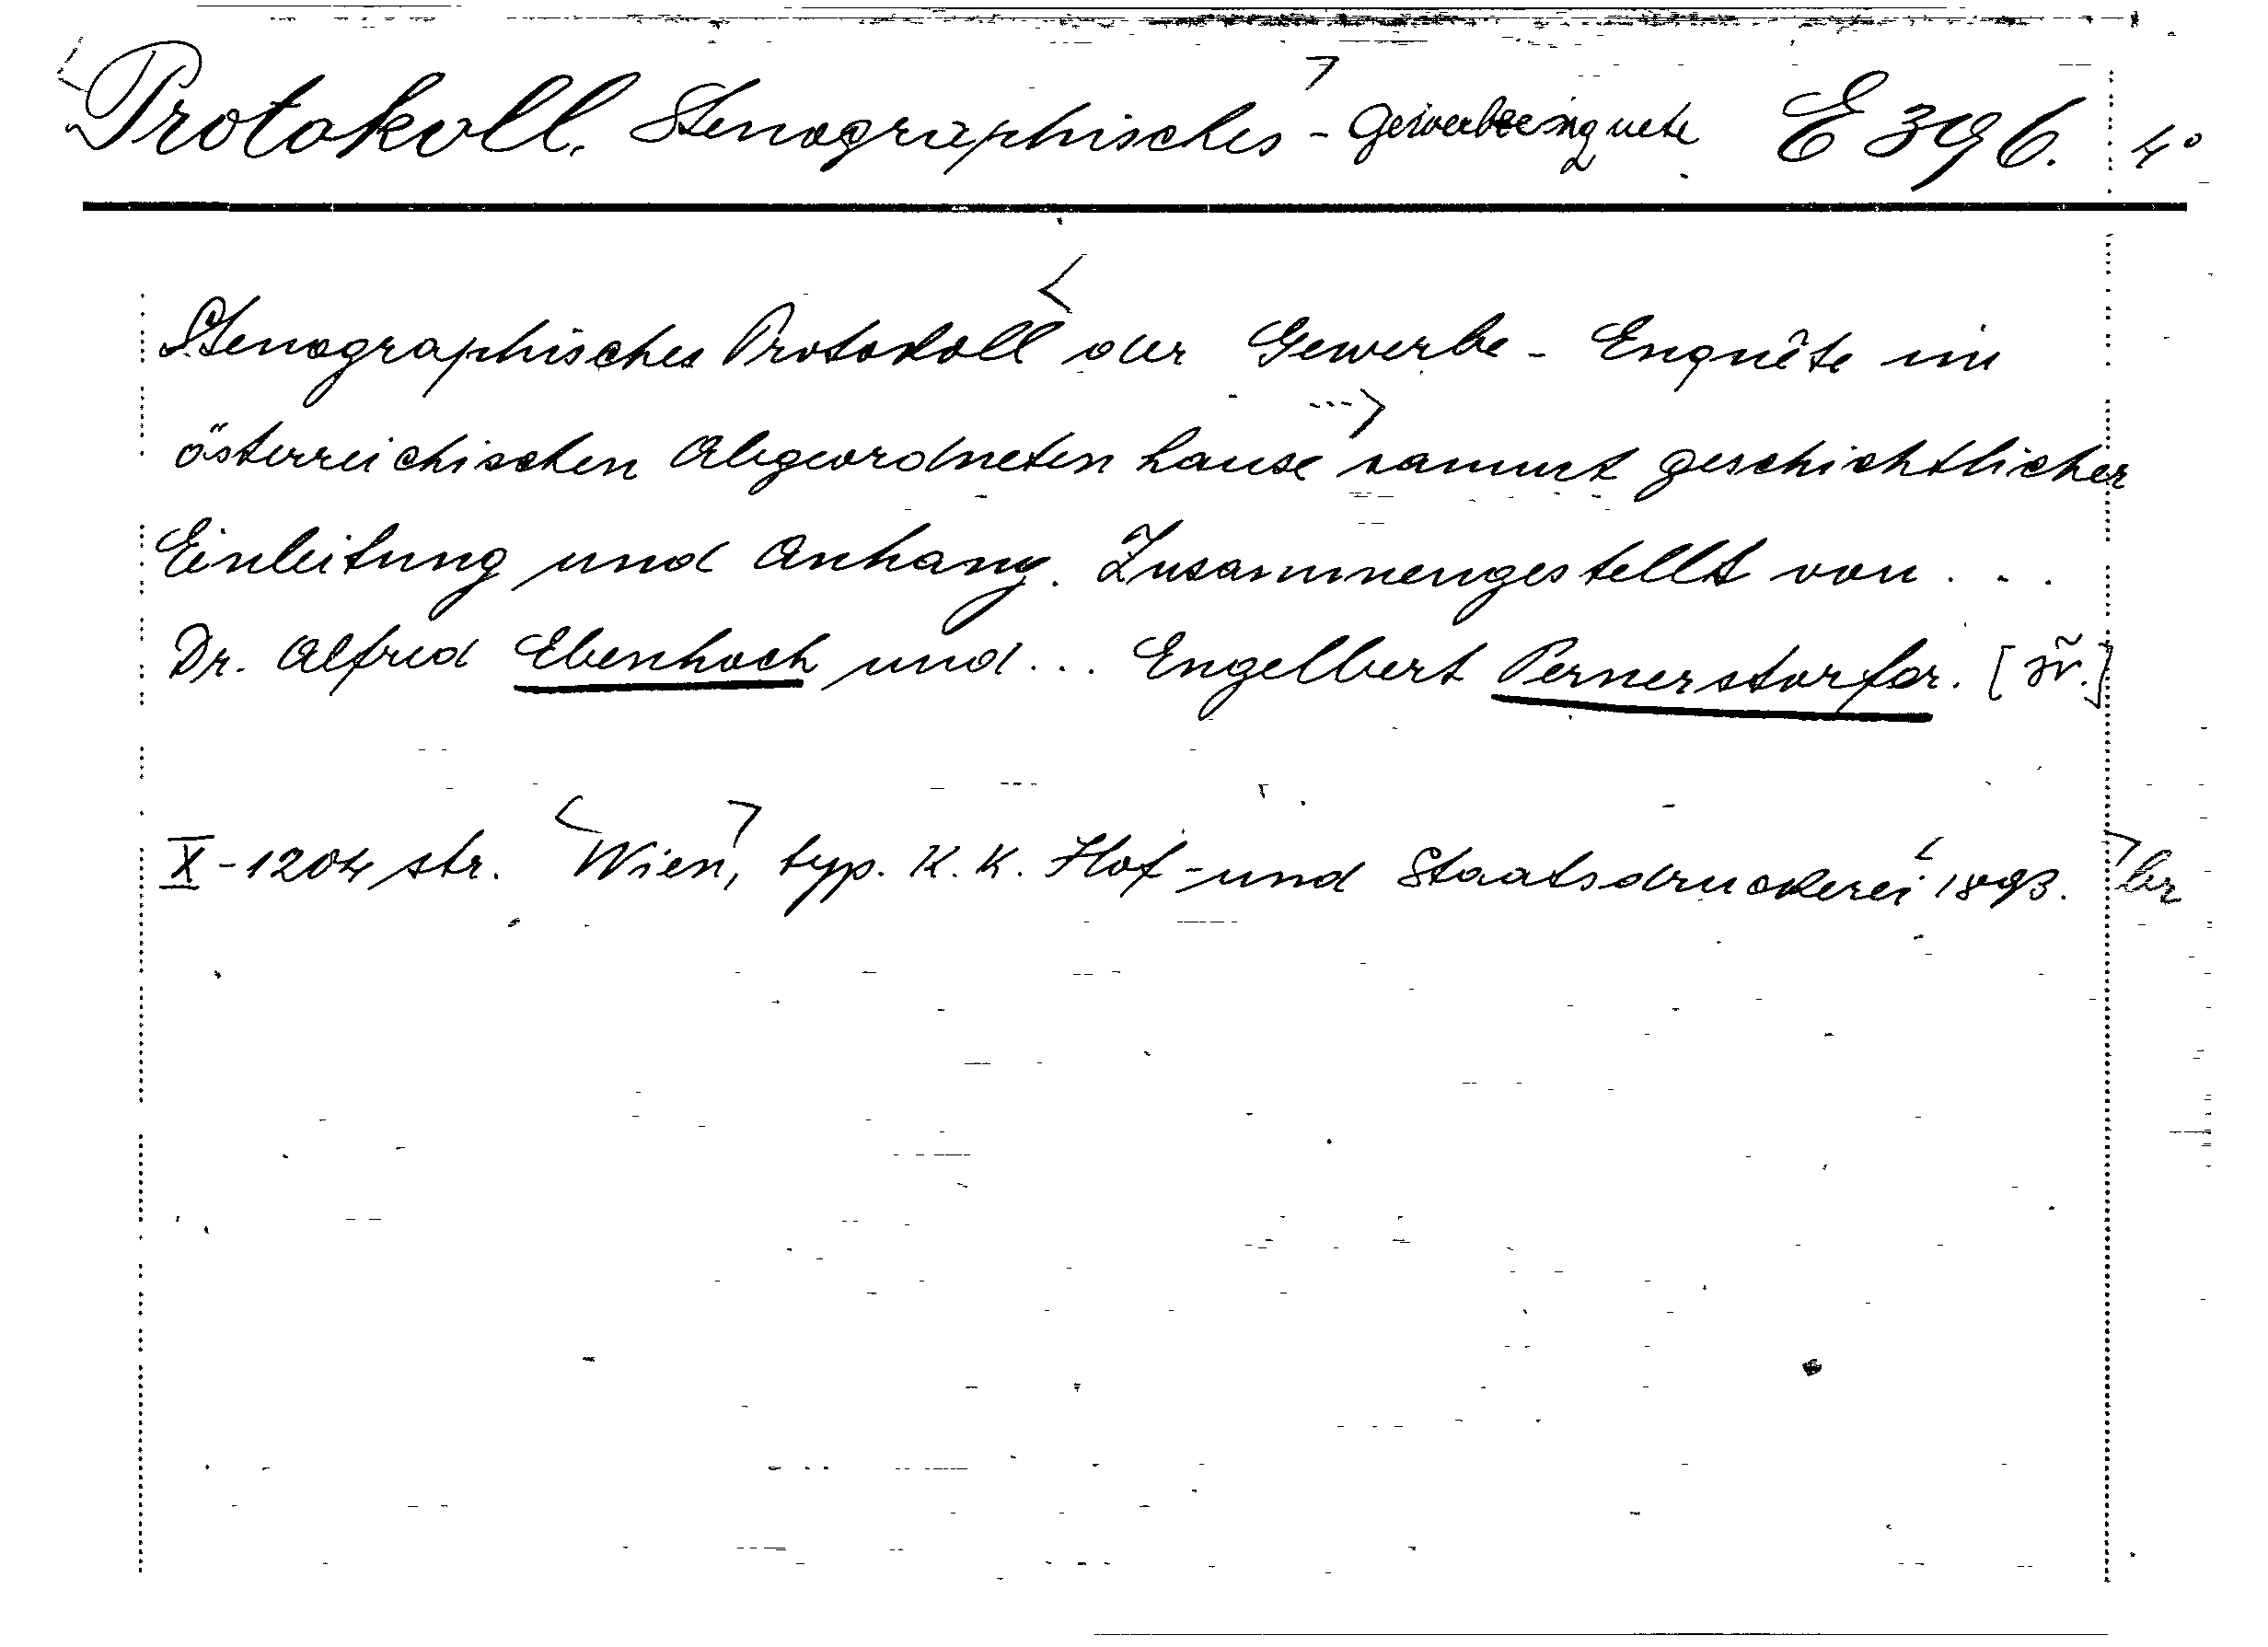 Protokoll. Stenographisches - Gewerbeenquete E 396. 4°
Stenographisches Protokoll der Gewerbe - Enquête im
österreichischen Abgeordneten hause sammt geschichtlicher
Einleitung und Anhang. Zusammengestellt von ...
Dr. Alfred Ebenhoch und ... Engelbert Pernerstorfer.
X - 1204 str. Wien, typ. K. K. Hof - und Staatsdruckerei 1893. br